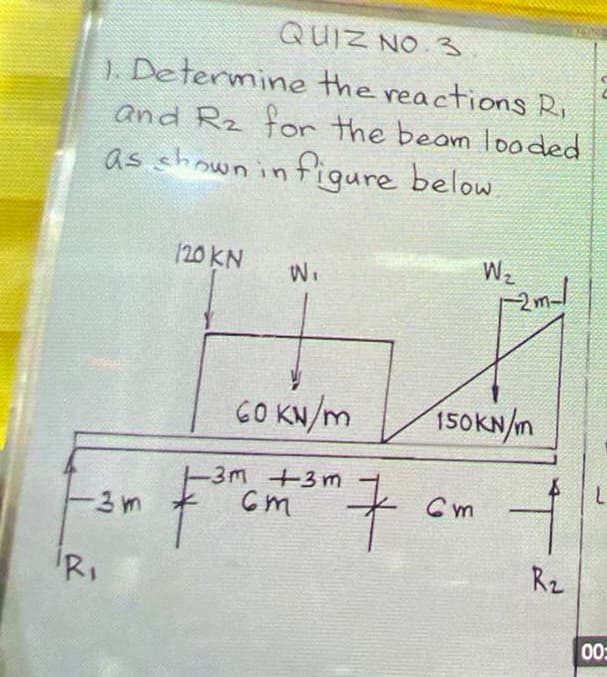 QUIZ NO. 3.
1. Determine the reactions R₁
and R₂ for the beam loaded
as shown in figure below.
120 KN W₁ W₂
2m
60 KN/m 150KN/m
3m + 3m
3m 6m 6m
R₁ R₂
00: